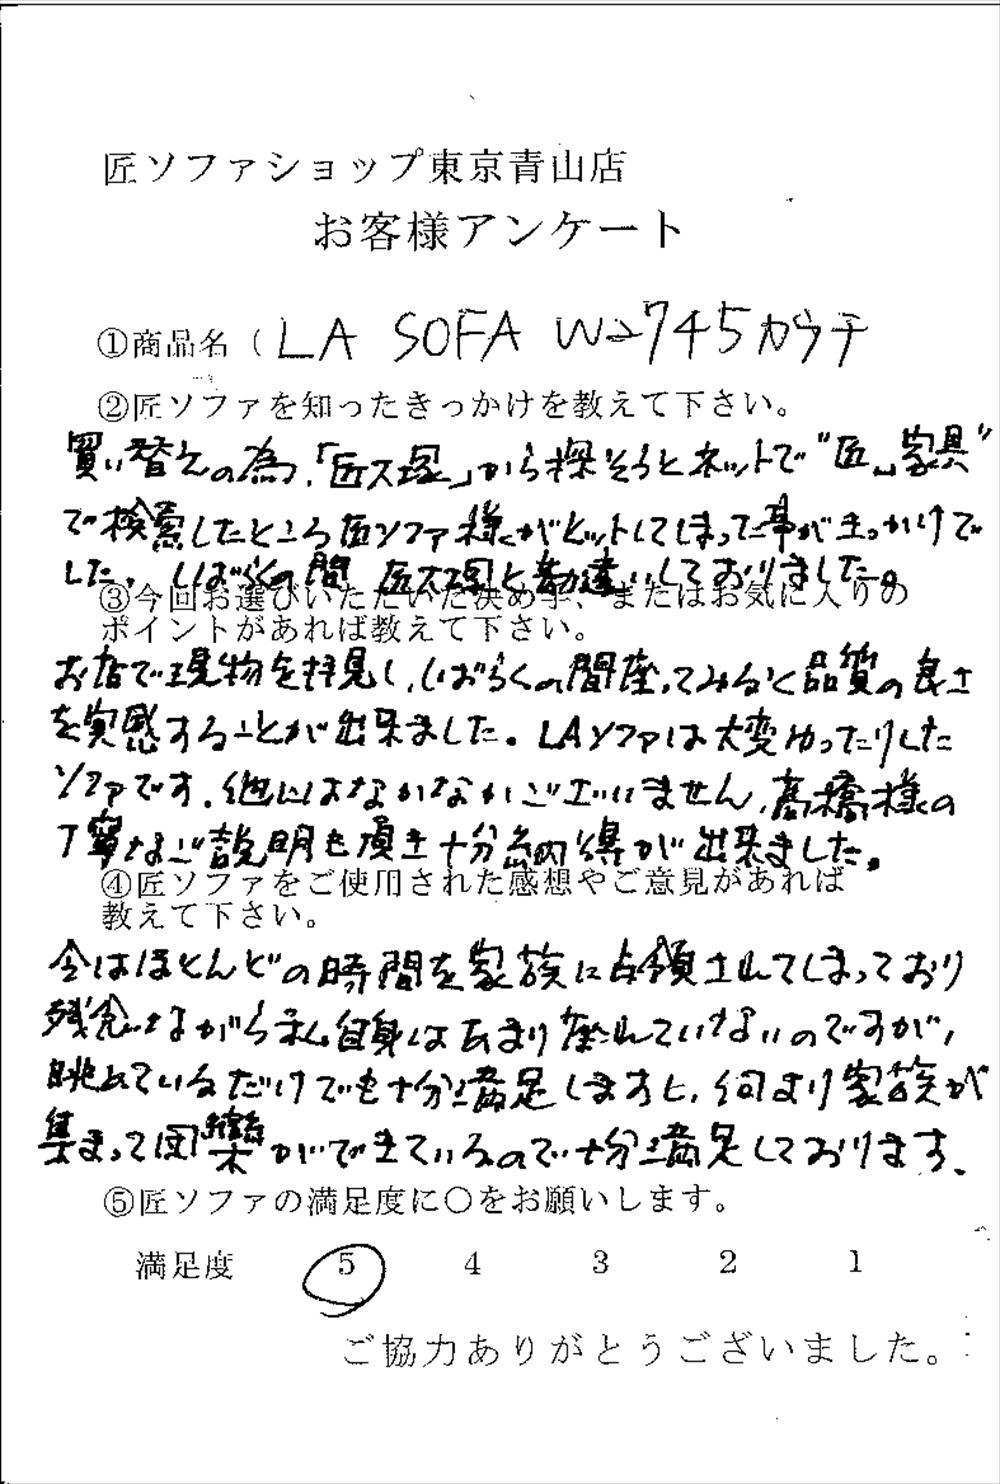 匠ソファショップ東京青山店
お客様アンケート
①商品名（LA SOFA W2745カウチ
②匠ソファを知ったきっかけを教えて下さい。
買い替えの為、「匠大塚」から探そうとネットで"匠、家具"
で検索したところ匠ソファ様がヒットしてしまった事がきっかけで
した。しばらくの間 匠大塚と勘違いしておりました。
③今回お選びいただいた決め手、またはお気に入りの
ポイントがあれば教えて下さい。
お店で現物を拝見し、しばらくの間座ってみると品質の良さ
を実感することが出来ました。LAソファは大変ゆったりした
ソファです。他にはなかなかございません、髙橋様の
丁寧なご説明も頂き十分納得が出来ました。
④匠ソファをご使用された感想やご意見があれば
教えて下さい。
今はほとんどの時間を家族に占領されてしまっており
残念ながら私自身はあまり座れていないのですが、
眺めているだけでも十分満足しますし、何より家族が
集まって団欒ができているので十分満足しております。
⑤匠ソファの満足度に〇をお願いします。
満足度 5 4 3 2 1
ご協力ありがとうございました。